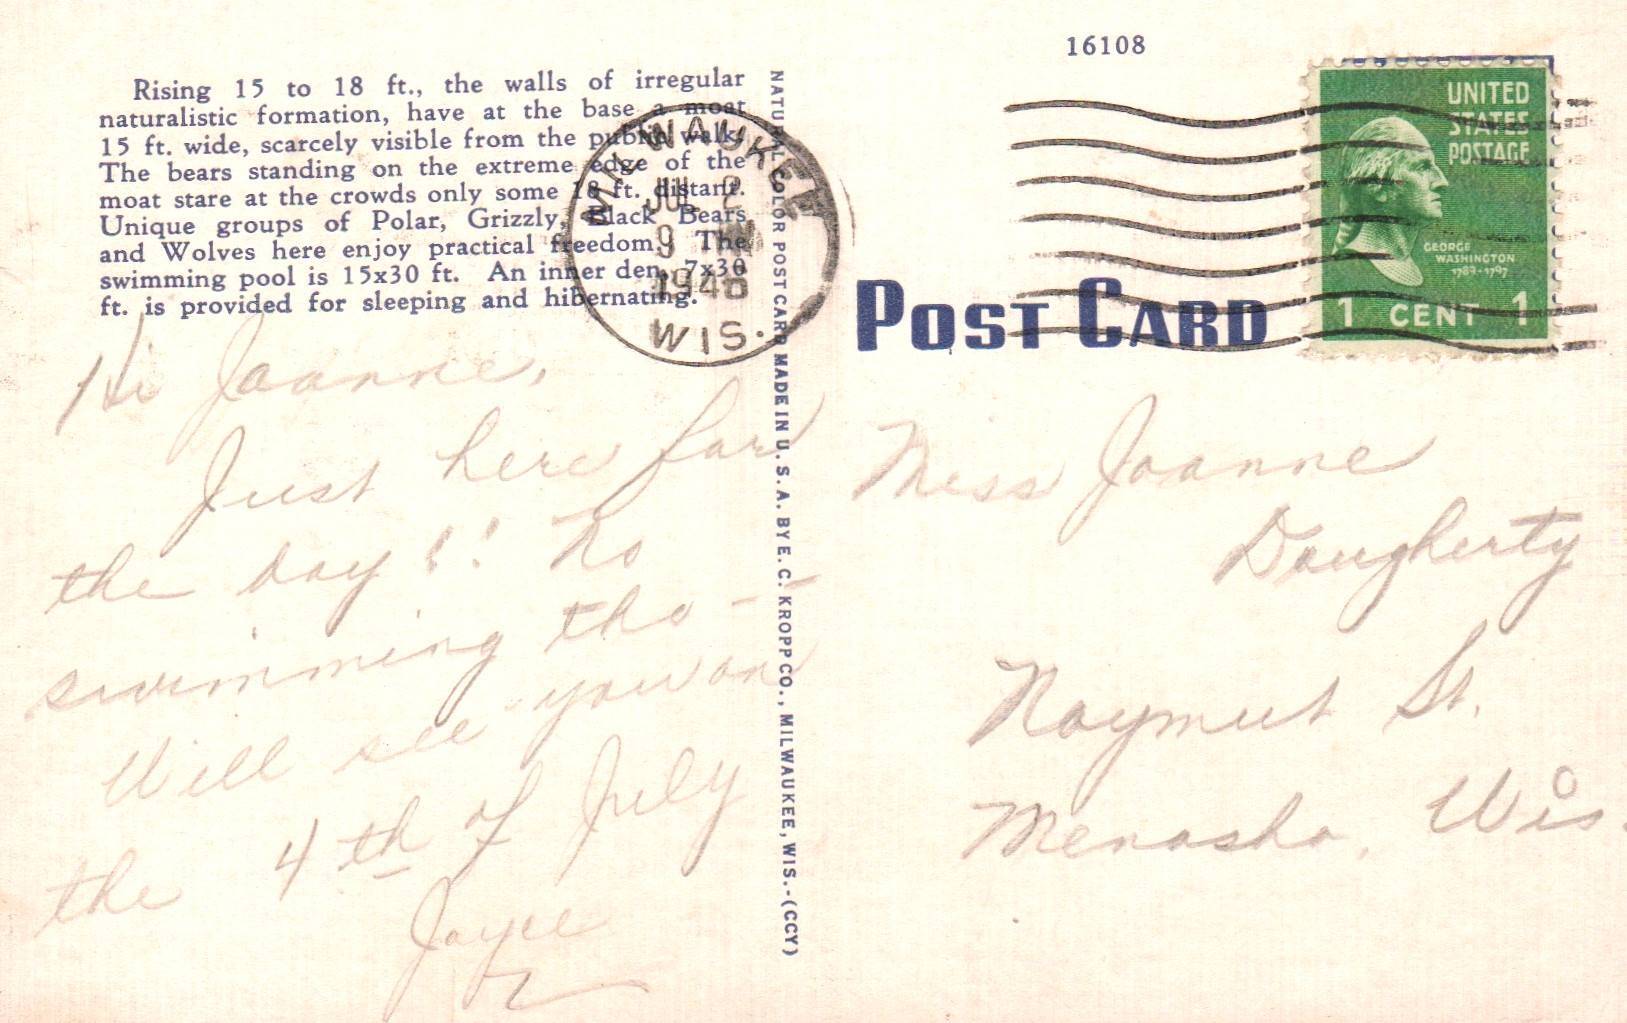 16108
Rising 15 to 18 ft., the walls of irregular
naturalistic formation, have at the base a moat
15 ft. wide, scarcely visible from the public walk.
The bears standing on the extreme edge of the
moat stare at the crowds only some 18 ft. distant.
Unique groups of Polar, Grizzly, Black Bears
and Wolves here enjoy practical freedom. The
swimming pool is 15x30 ft. An inner den, 7x30
ft. is provided for sleeping and hibernating.
MILWAUKEE
JUL 2
9
1948
WIS.
Hi Joanne,
Just here for
the day!! No
swimming tho —
Will see you on
the 4th of July
Joyce
NATURAL COLOR POST CARD MADE IN U.S.A. BY E. C. KROPP CO., MILWAUKEE, WIS.-(CCY)
POST CARD
UNITED
STATES
POSTAGE
GEORGE
WASHINGTON
1789-1797
1 CENT 1
Miss Joanne
Dougherty
Naymut St.
Menasha, Wis.